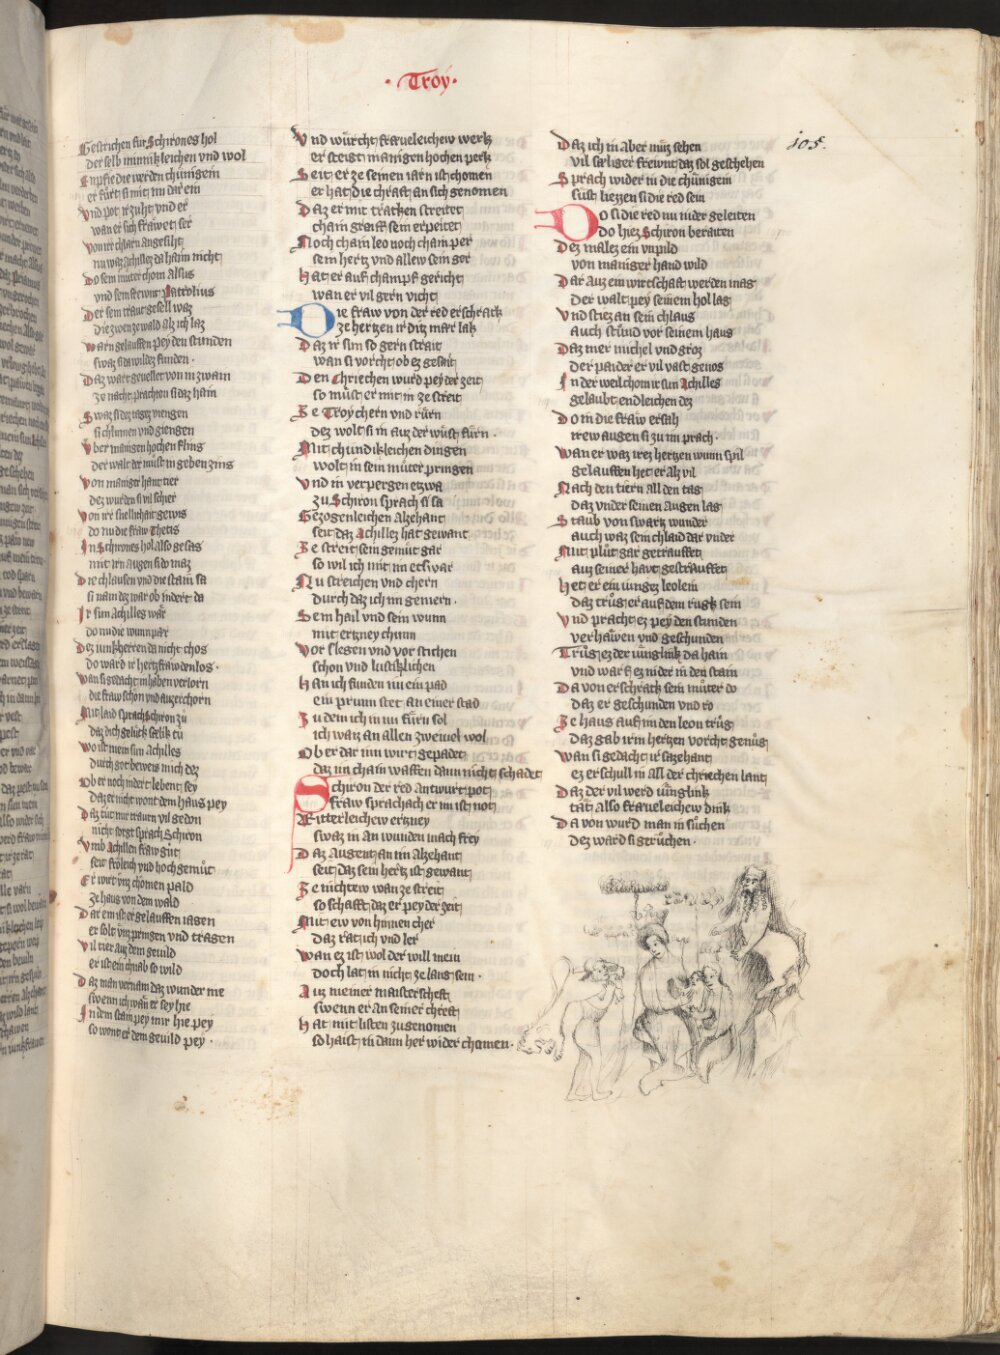 · Troy ·
105.
Gestrichen für Schirones hol
der selb minnikleichen vnd wol
Enpfie die werden chünigein
er fürt si mit im dar ein
Vnd pot ir zuht vnd er
wan er sich frawet ser
Von ir chlarn angesiht
nu waz Achillez da haim nicht
Do sem müter chom Alsus
vnd sein frewnt Patrolius
Der sein traut gesell waz
die zwen ze wald alz ich laz
Warn gelauffen pey den stunden
swaz si da wildez funden ·
Daz wart geuellet von in zwain
ze nacht prachten si daz hain
Swaz si dez tagez viengen
si chlummen vnd giengen
Vber manigen hochen fling
der walt der müst in geben zins
Von maniger hant tier
dez wurden si vil schier
Von ir snellichait gewis
do nu die fraw Thetis
In Schirones hol also gesas
mit irn augen si do maz
Die chlausen vnd die stain sa
si nam dez war ob indert da
Ir sun Achilles wär
do nu die wunnpär
Dez iunkherren da nicht chos
do ward ir hertz frawdenlos ·
Wan si gedacht in haben verlorn
die fraw schon vnd auzerchorn
Mit laid sprach Schiron zü
daz dich gelück selik tü
Wo ist mein sun Achilles
durch got beweis mich dez
Ob er noch indert lebent sey
daz er nicht wont dem haus pey
Daz tüt mir trauren vil gedon
nicht sorgt sprach Schiron
Vmb Achillen fraw güt
seit frölich vnd hochgemüt
Er wirt vnz chomen pald
ze haus von dem wald
Dar em ist er gelauffen iagen
er solt vnz pringen vnd tragen
Vil tier auz dem geuild
er ist ein chnab so wild
Daz man vernam daz wunder nie
swenn ich wän er sey hie
In dem stain pey mir hie pey
so wont er dem geuild pey ·
Vnd würcht fraueleichew werk
er steigt manigen hochen perk
Seit er ze seinen iarn ist chomen
er hat die chraft an sich genomen
Daz er mit trakken streitet
chain greiff sem erpeitet
Noch chain leo noch chain per
sein hertz vnd allew sein ger
Hat er auf champf gericht
wan er vil gern vicht
Die fraw von der red erschrack
ze hertzen ir ditz mär lak
Daz ir sun so gern strait
wan si vorcht ob ez geseit
Den Chriechen wurd pey der zeit
so müst er mit in ze streit
Ze Troy chern vnd rürn
dez wolt si in auz der wüst fürn ·
Mit chundikleichen dingen
wolt in sein müter pringen
Vnd in verpergen etzwa
zu Schiron sprach si sa
Gezogenleichen Alzehant
seit daz Achillez hat gewant
Ze streit sein gemüt gar
so wil ich mit im etswar
Nu streichen vnd chern
durch daz ich im gemern ·
Sem hail vnd sein wunn
mit ertzney chunn
Vor slegen vnd vor stichen
schon vnd lustiklichen
Han ich funden nu ein pad
ein prunn stet an einer stad
Zu dem ich in nu fürn sol
ich waiz an allen zweiuel wol
Ob er dar inn wirt gepadet
daz im chain waffen dann nicht schadet
Schiron der red antwurt pot
fraw sprach er im ist not
Ritterleichew ertzney
swaz in an wunden mach frey
Daz Augent an im Alzehant
seit daz sein hertz ist gewant
Ze nichtew wan ze streit
so schafft daz er pey der zeit
Mit ew von hinnen cher
daz rat ich vnd ler
Wan ez ist wol der will mein
doch lat in nicht ze lang sein ·
Auz meiner maisterscheft
swenn er an seiner chreft
Hat mit listen zu genomen
so haist in dann her wider chomen ·
Daz ich in aber müz sehen
vil sæliger frewnt daz sol geschehen
Sprach wider in die chünigein
süst liezzen si die red sein
Do si die red nu nider geleiten
do hiez Schiron beraiten
Dez malez ein vnpild
von maniger hand wild
Dar auz ein wirtschaft werden mag
der walt pey seinem hol lag
Vnd stiez an sein chlaus
auch stünd vor seinem haus
Daz mer michel vnd groz
der paider er vil vast genos
In der weil chom ir sun Achilles
gelaubt endleichen dez
Do in die fraw ersah
irew augen si zu im prach ·
Wan er waz irez hertzen wunn spil
gelauffen het er alz vil
Nach den tiern all den tag
daz vnder seinen augen lag
Staub von swartz wunder
auch waz sein chlaid dar vnder
Mit plüt gar getrauffet
auz seiner haut gestrauffet
Het er ein iungez leolein
daz trüg er auf dem rugk sein
Vnd pracht ez pey den stunden
verhawen vnd geschunden
Trüg ez der iünglink da hain
vnd warf ez nider in den stain
Da von erschrack sein müter do
daz er geschunden vnd ro
Ze haus auf im den leon trüg
daz gab irm hertzen vorcht genüg
Wan si gedacht ir sazehant
ez erschull in all der chriechen lant
Daz der vil werd iünglink
tät also fraueleichew dink
Da von wurd man in süchen
dez ward si gerüchen ·